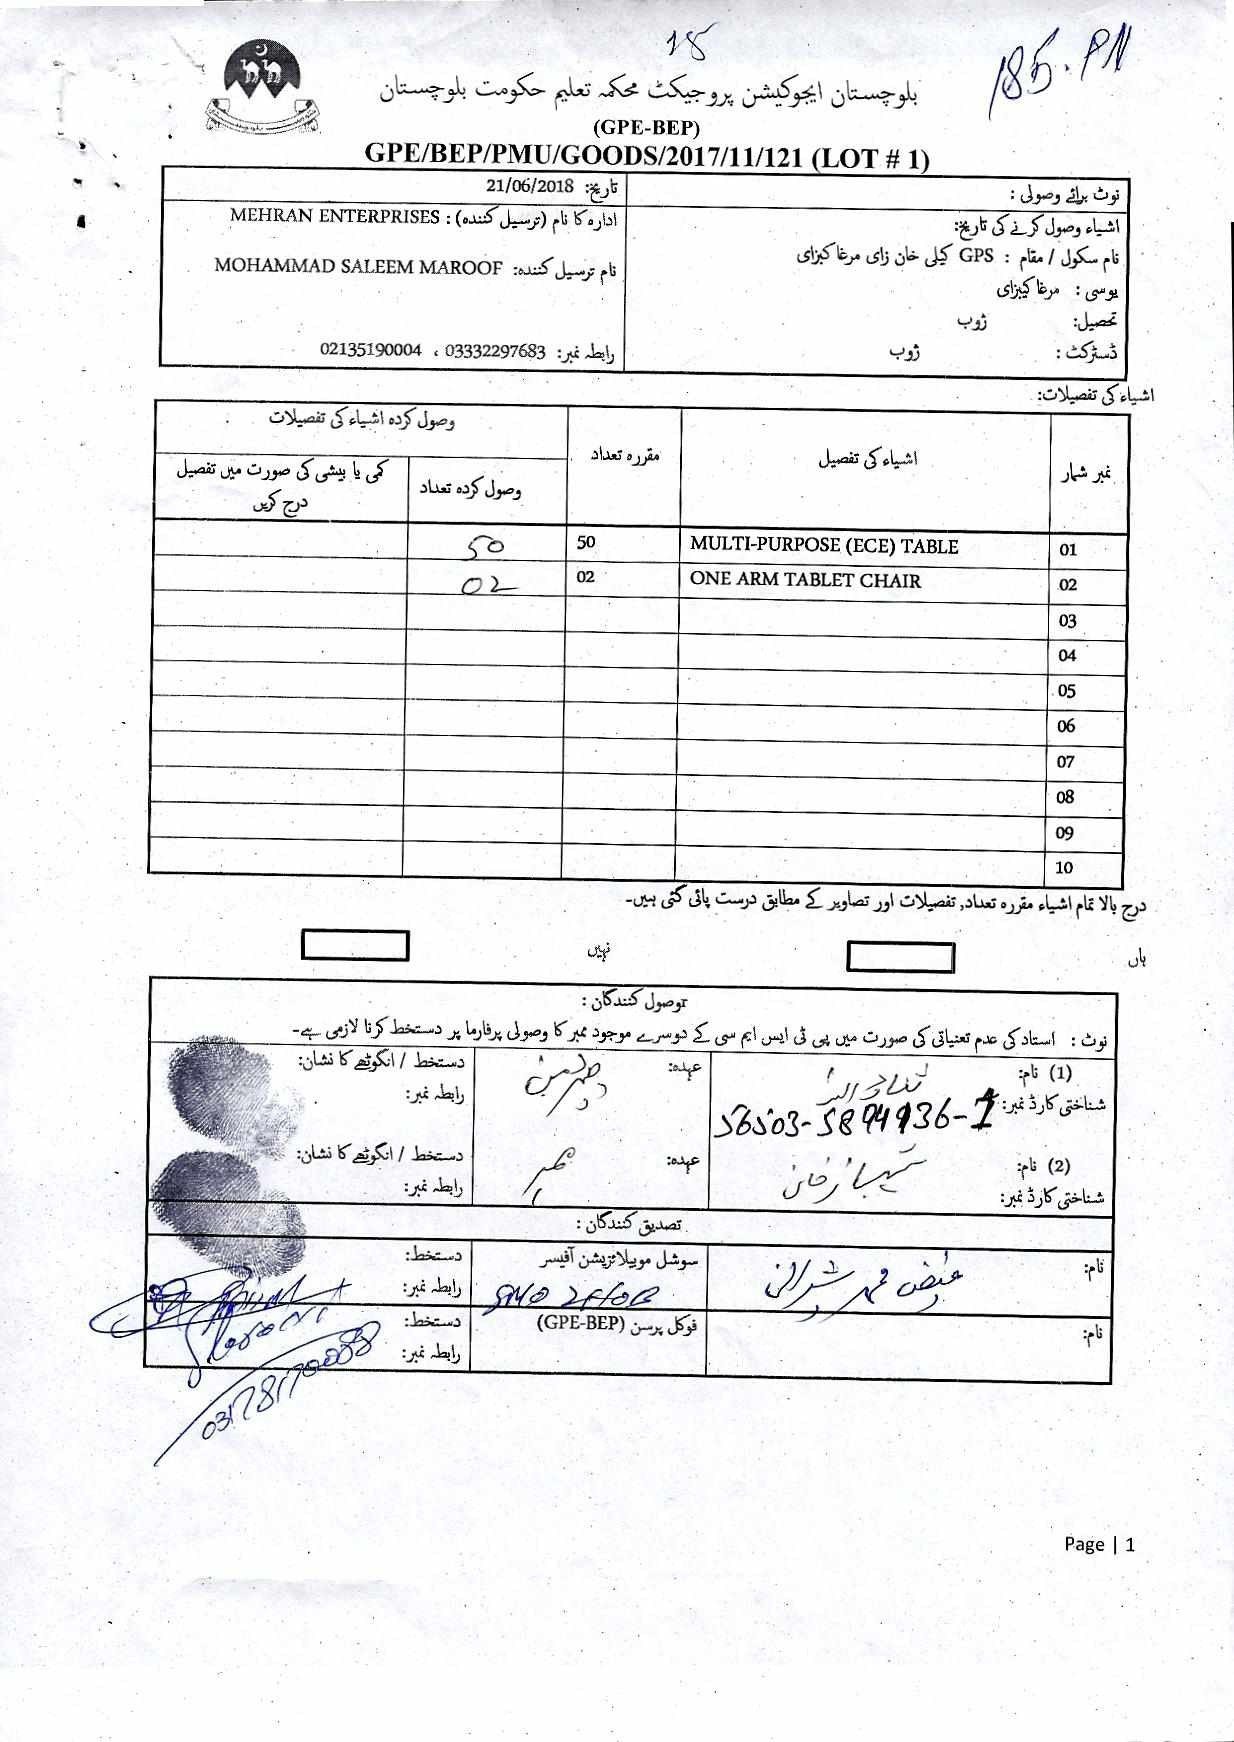 18
185.PN
بلوچستان ایجوکیشن پروجیکٹ محکمہ تعلیم حکومت بلوچستان
(GPE-BEP)
GPE/BEP/PMU/GOODS/2017/11/121 (LOT # 1)
نوٹ برائے وصولی :
تاریخ: 21/06/2018
اشیاء وصول کرنے کی تاریخ:
ادارہ کا نام (ترسیل کنندہ) : MEHRAN ENTERPRISES
نام سکول / مقام : GPS کیلی خان زای مرغا کبزای
نام ترسیل کنندہ: MOHAMMAD SALEEM MAROOF
یوسی : مرغا کیبزای
تحصیل: ژوب
ڈسٹرکٹ : ژوب
رابطہ نمبر: 03332297683 ، 02135190004
اشیاء کی تفصیلات:
نمبر شمار اشیاء کی تفصیل مقررہ تعداد وصول کردہ اشیاء کی تفصیلات
وصول کردہ تعداد کمی یا بیشی کی صورت میں تفصیل درج کریں
01 MULTI-PURPOSE (ECE) TABLE 50 50
02 ONE ARM TABLET CHAIR 02 02
03
04
05
06
07
08
09
10
درج بالا تمام اشیاء مقررہ تعداد, تفصیلات اور تصاویر کے مطابق درست پائی گئی ہیں۔
ہاں نہیں
توصول کنندگان :
نوٹ : استاد کی عدم تعنیاتی کی صورت میں پی ٹی ایس ایم سی کے دوسرے موجود ممبر کا وصولی پرفارما پر دستخط کرنا لازمی ہے۔
(1) نام: عہدہ: دستخط / انگوٹھے کا نشان:
شناختی کارڈ نمبر: 56503-5894936-1 رابطہ نمبر:
(2) نام: شہباز خان عہدہ: ممبر دستخط / انگوٹھے کا نشان:
شناختی کارڈ نمبر: رابطہ نمبر:
تصدیق کنندگان :
نام: فیض محمد شیرانی سوشل موبیلائزیشن آفیسر دستخط:
SMO ZHOB رابطہ نمبر:
نام: فوکل پرسن (GPE-BEP) دستخط:
رابطہ نمبر:
Page | 1